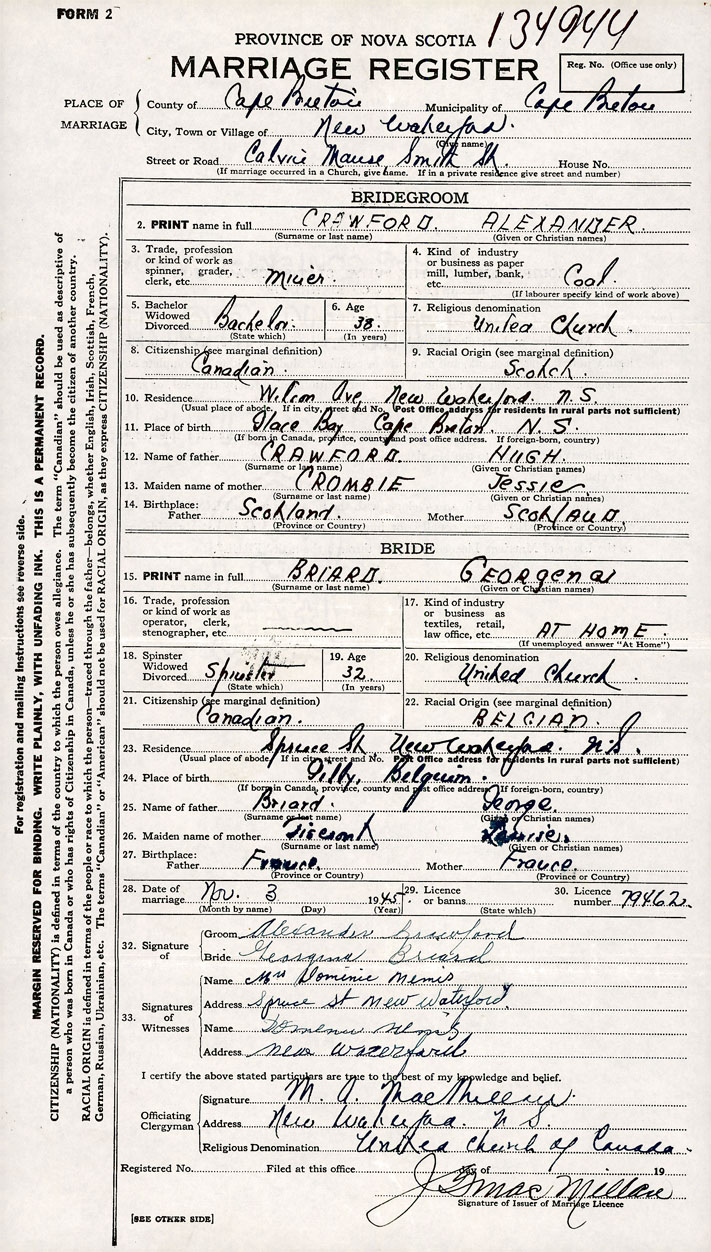 FORM 2
134944
PROVINCE OF NOVA SCOTIA
MARRIAGE REGISTER
Reg. No. (Office use only)
PLACE OF MARRIAGE
County of Cape Breton Municipality of Cape Breton
City, Town or Village of New Waterford.
(Give name)
Street or Road Calvin Manse, Smith St. House No.
(If marriage occurred in a Church, give name. If in a private residence give street and number)
BRIDEGROOM
2. PRINT name in full CRAWFORD. ALEXANDER.
(Surname or last name) (Given or Christian names)
3. Trade, profession or kind of work as spinner, grader, clerk, etc. Miner.
4. Kind of industry or business as paper mill, lumber, bank, etc. Coal.
(If labourer specify kind of work above)
5. Bachelor Widowed Divorced Bachelor.
(State which)
6. Age 38.
(In years)
7. Religious denomination United Church.
8. Citizenship (see marginal definition) Canadian.
9. Racial Origin (see marginal definition) Scotch.
10. Residence Wilson Ave, New Waterford. N.S.
(Usual place of abode. If in city, street and No. Post Office address for residents in rural parts not sufficient)
11. Place of birth Glace Bay Cape Breton. N.S.
(If born in Canada, province, county and post office address. If foreign-born, country)
12. Name of father CRAWFORD. HUGH.
(Surname or last name) (Given or Christian names)
13. Maiden name of mother CROMBIE Jessie.
(Surname or last name) (Given or Christian names)
14. Birthplace: Father Scotland. Mother SCOTLAND.
(Province or Country) (Province or Country)
BRIDE
15. PRINT name in full BRIARD. GEORGENA
(Surname or last name) (Given or Christian names)
16. Trade, profession or kind of work as operator, clerk, stenographer, etc.
17. Kind of industry or business as textiles, retail, law office, etc. AT HOME.
(If unemployed answer "At Home")
18. Spinster Widowed Divorced Spinster
(State which)
19. Age 32.
(In years)
20. Religious denomination United Church.
21. Citizenship (see marginal definition) Canadian.
22. Racial Origin (see marginal definition) BELGIAN.
23. Residence Spruce St, New Waterford. N.S.
(Usual place of abode. If in city street and No. Post Office address for residents in rural parts not sufficient)
24. Place of birth Belguim.
(If born in Canada, province, county and post office address. If foreign-born, country)
25. Name of father Briard. George.
(Surname or last name) (Given or Christian names)
26. Maiden name of mother Louise.
(Surname or last name) (Given or Christian names)
27. Birthplace: Father France. Mother France.
(Province or Country) (Province or Country)
28. Date of marriage Nov. 3 1945.
(Month by name) (Day) (Year)
29. Licence or banns
(State which)
30. Licence number 79462.
32. Signature of
Groom Alexander Crawford
Bride Georgina Briard
33. Signatures of Witnesses
Name Mrs Dominic Nemis
Address Spruce St New Waterford,
Name
Address New Waterford
I certify the above stated particulars are true to the best of my knowledge and belief.
Officiating Clergyman
Signature M. A.
Address New Waterford. N S.
Religious Denomination United Church of Canada.
Registered No. Filed at this office day of 19
MacMillan
Signature of Issuer of Marriage Licence
[SEE OTHER SIDE]
For registration and mailing instructions see reverse side.
MARGIN RESERVED FOR BINDING. WRITE PLAINLY, WITH UNFADING INK. THIS IS A PERMANENT RECORD.
CITIZENSHIP (NATIONALITY) is defined in terms of the country to which the person owes allegiance. The term "Canadian" should be used as descriptive of
a person who was born in Canada or who has rights of Citizenship in Canada, unless he or she has subsequently become the citizen of another country.
RACIAL ORIGIN is defined in terms of the people or race to which the person—traced through the father—belongs, whether English, Irish, Scottish, French,
German, Russian, Ukrainian, etc. The terms "Canadian" or "American" should not be used for RACIAL ORIGIN, as they express CITIZENSHIP (NATIONALITY).